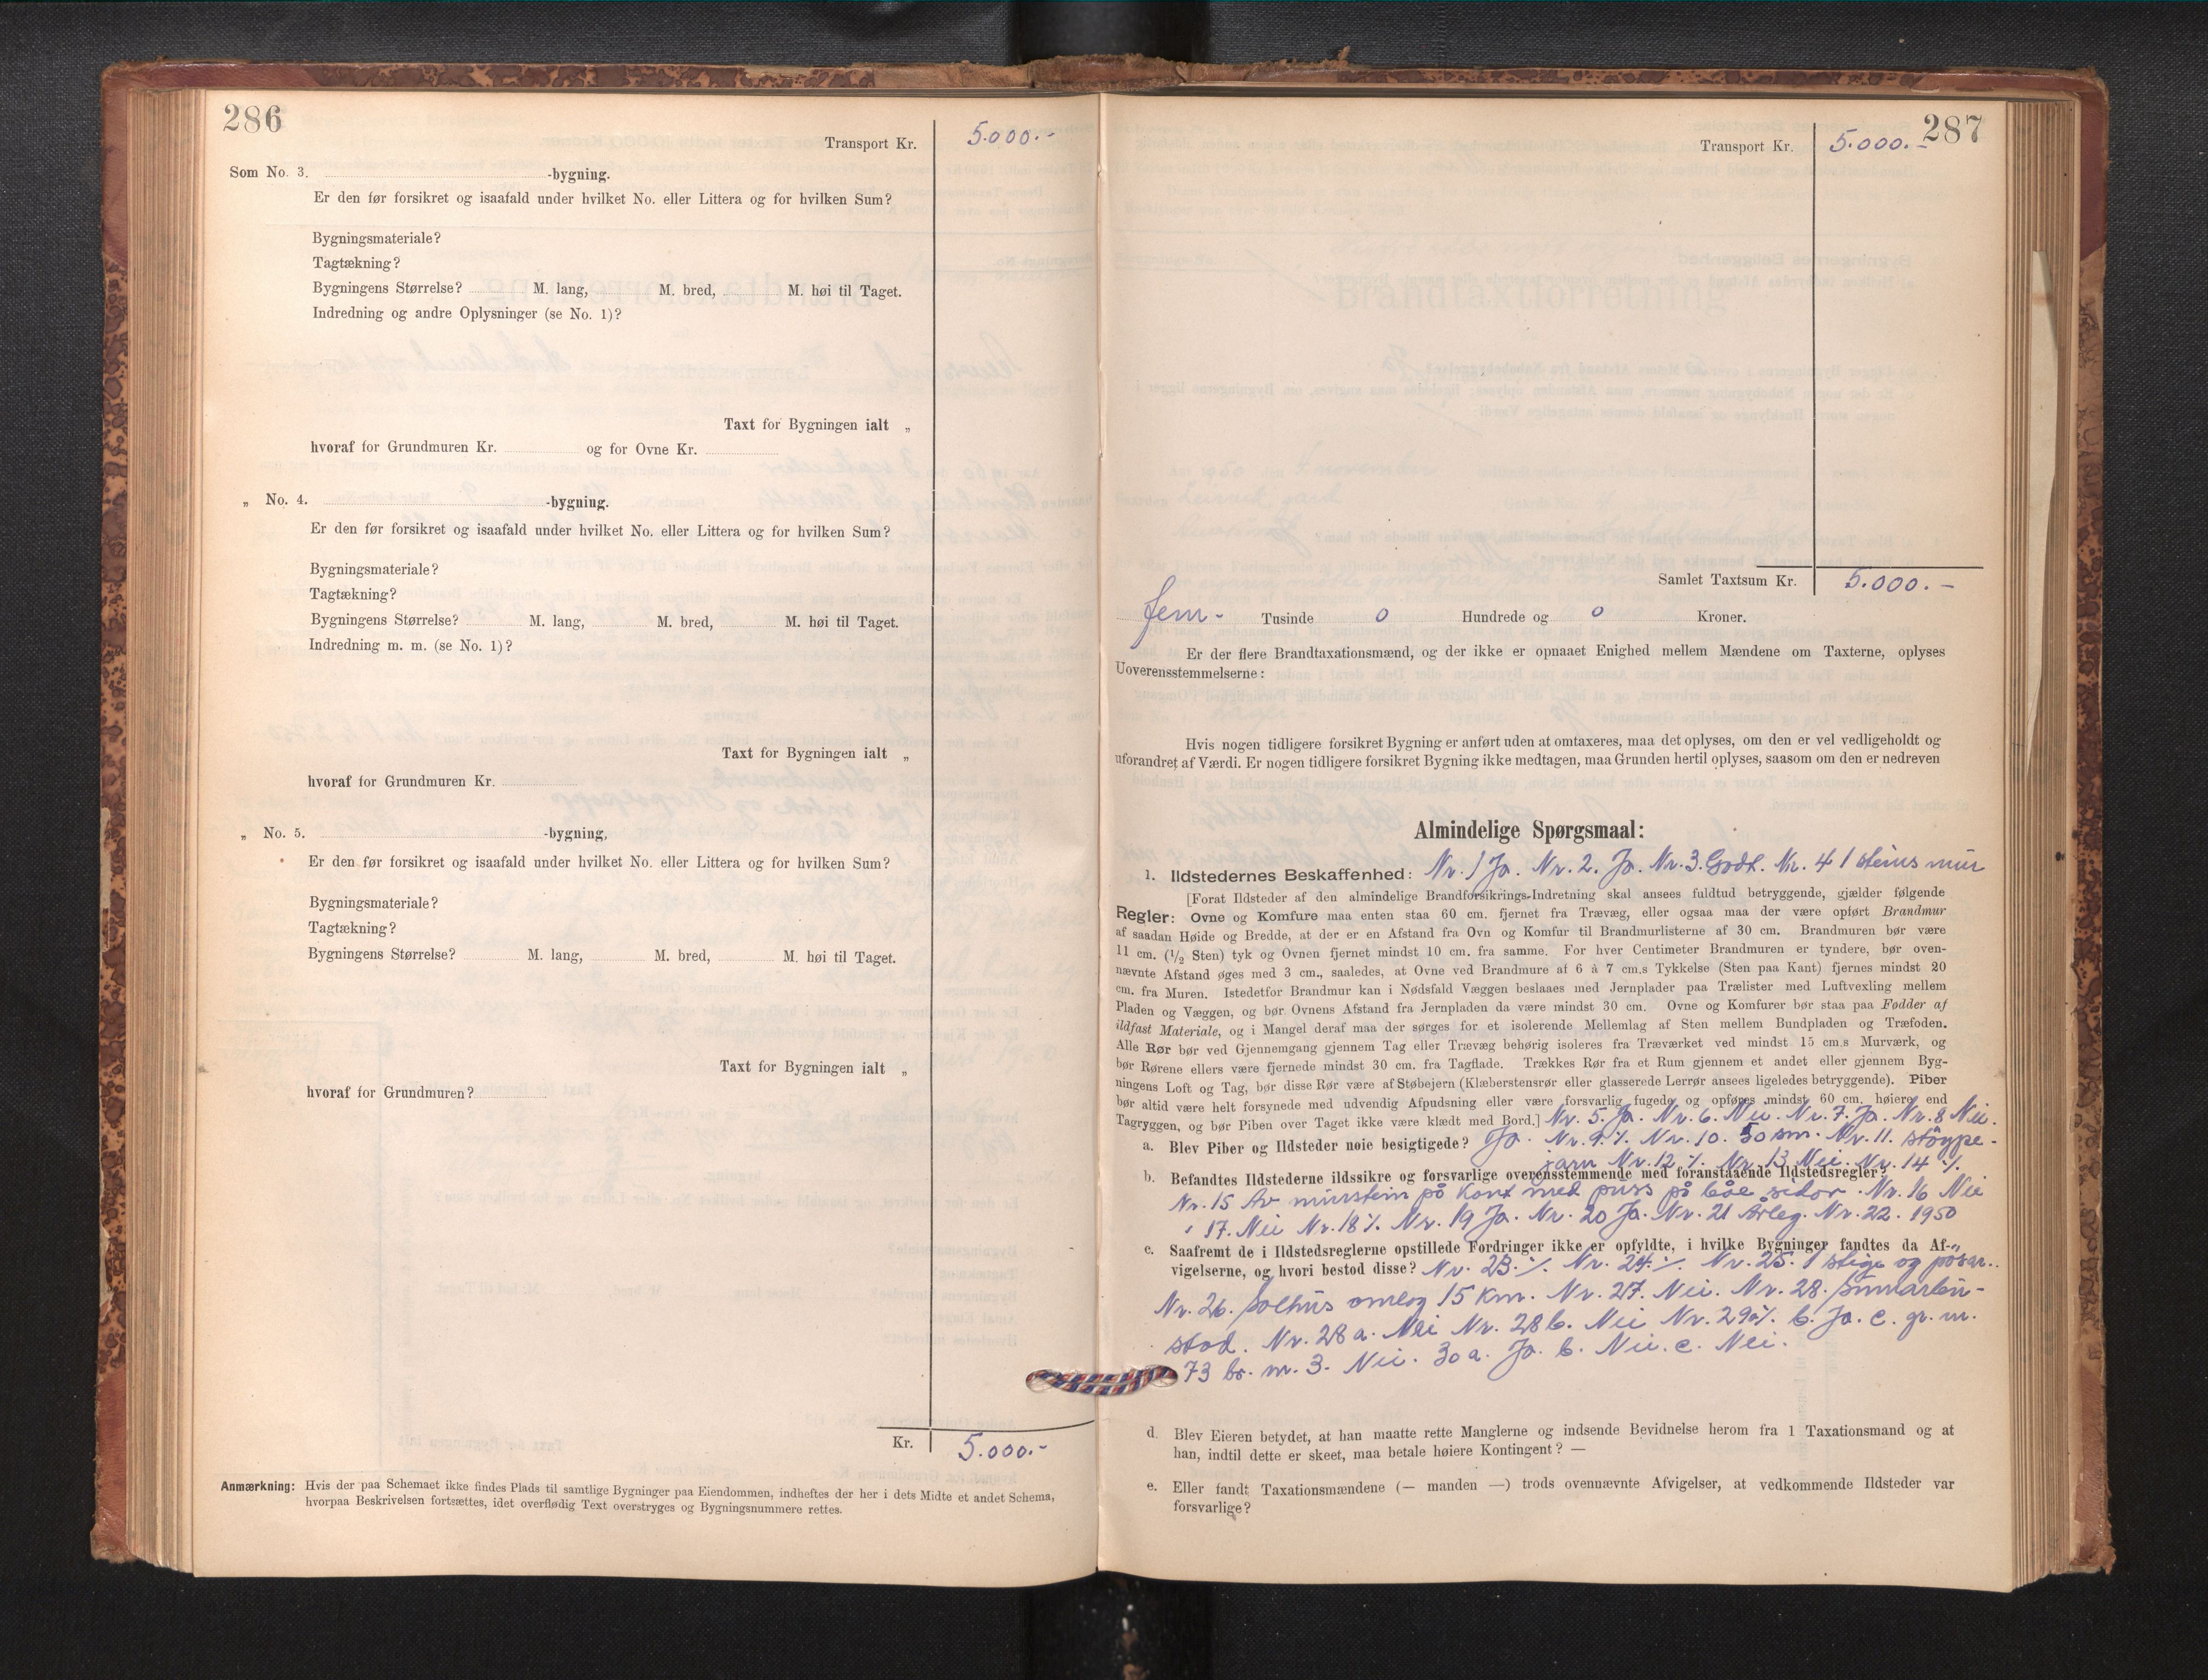 286
Transport Kr. 5.000.-
Som No. 3. -bygning.
Er den før forsikret og isaafald under hvilket No. eller Littera og for hvilken Sum?
Bygningsmateriale?
Tagtækning?
Bygningens Størrelse? M. lang, M. bred, M. høi til Taget.
Indredning og andre Oplysninger (se No. 1)?
Taxt for Bygningen ialt „
hvoraf for Grundmuren Kr. og for Ovne Kr.
„ No. 4. -bygning.
Er den før forsikret og isaafald under hvilket No. eller Littera og for hvilken Sum?
Bygningsmateriale?
Tagtækning?
Bygningens Størrelse? M. lang, M. bred, M. høi til Taget.
Indredning m. m. (se No. 1)?
Taxt for Bygningen ialt „
hvoraf for Grundmuren Kr.
„ No. 5. -bygning,
Er den før forsikret og isaafald under hvilket No. eller Littera og for hvilken Sum?
Bygningsmateriale?
Tagtækning?
Bygningens Størrelse? M. lang, M. bred, M. høi til Taget.
Taxt for Bygningen ialt „
hvoraf for Grundmuren?
Kr. 5.000.-
Anmærkning: Hvis der paa Schemaet ikke findes Plads til samtlige Bygninger paa Eiendommen, indheftes der her i dets Midte et andet Schema,
hvorpaa Beskrivelsen fortsættes, idet overflødig Text overstryges og Bygningsnummere rettes.
287
Transport Kr. 5.000.-
Samlet Taxtsum Kr. 5.000.-
fem- Tusinde 0 Hundrede og 0 Kroner.
Er der flere Brandtaxationsmænd, og der ikke er opnaaet Enighed mellem Mændene om Taxterne, oplyses
Uoverensstemmelserne:
Hvis nogen tidligere forsikret Bygning er anført uden at omtaxeres, maa det oplyses, om den er vel vedligeholdt og
uforandret af Værdi. Er nogen tidligere forsikret Bygning ikke medtagen, maa Grunden hertil oplyses, saasom om den er nedreven
Almindelige Spørgsmaal:
1. Ildstedernes Beskaffenhed: Nr. 1 Ja. Nr. 2. Ja. Nr. 3. Godt. Nr. 4 1 steins mur
[Forat Ildsteder af den almindelige Brandforsikrings-Indretning skal ansees fuldtud betryggende, gjælder følgende
Regler: Ovne og Komfure maa enten staa 60 cm. fjernet fra Trævæg, eller ogsaa maa der være opført Brandmur
af saadan Høide og Bredde, at der er en Afstand fra Ovn og Komfur til Brandmurlisterne af 30 cm. Brandmuren bør være
11 cm. (1/2 Sten) tyk og Ovnen fjernet mindst 10 cm. fra samme. For hver Centimeter Brandmuren er tyndere, bør oven-
nævnte Afstand øges med 3 cm., saaledes, at Ovne ved Brandmure af 6 à 7 cm.s Tykkelse (Sten paa Kant) fjernes mindst 20
cm. fra Muren. Istedetfor Brandmur kan i Nødsfald Væggen beslaaes med Jernplader paa Trælister med Luftvexling mellem
Pladen og Væggen, og bør Ovnens Afstand fra Jernpladen da være mindst 30 cm. Ovne og Komfurer bør staa paa Fødder af
ildfast Materiale, og i Mangel deraf maa der sørges for et isolerende Mellemlag af Sten mellem Bundpladen og Træfoden.
Alle Rør bør ved Gjennemgang gjennem Tag eller Trævæg behørig isoleres fra Træværket ved mindst 15 cm.s Murværk, og
bør Rørene ellers være fjernede mindst 30 cm. fra Tagflade. Trækkes Rør fra et Rum gjennem et andet eller gjennem Byg-
ningens Loft og Tag, bør disse Rør være af Støbejern (Klæberstensrør eller glasserede Lerrør ansees ligeledes betryggende). Piber
bør altid være helt forsynede med udvendig Afpudsning eller være forsvarlig fugede og opføres mindst 60 cm. høiere end
Tagryggen, og bør Piben over Taget ikke være klædt med Bord.] Nr. 5. Ja. Nr. 6. Nei. Nr. 7. Ja. Nr. 8 Nei.
a. Blev Piber og Ildsteder nøie besigtigede? Ja. Nr. 9 ./. Nr. 10. 50 sm. Nr. 11. støype-
jarn Nr. 12 ./. Nr. 13 Nei. Nr. 14 ./.
b. Befandtes Ildstederne ildssikre og forsvarlige overensstemmende med foranstaaende Ildstedsregler?
Nr. 15 Av murstein på kant med puss på båe sider. Nr. 16 Nei
" 17. Nei Nr. 18 ./. Nr. 19 Ja. Nr. 20 Ja. Nr. 21 Årleg. Nr. 22. 1950
c. Saafremt de i Ildstedsreglerne opstillede Fordringer ikke er opfyldte, i hvilke Bygninger fandtes da Af-
vigelserne, og hvori bestod disse? Nr. 23. ./. Nr. 24. ./. Nr. 25. 1 stige og
Nr. 26. omlag 15 km. Nr. 27. Nei. Nr. 28.
Nr. 28 a. Nei Nr. 28 b. Nei Nr. 29a ./. b. Ja. c. gr. nr.
73 br. nr. 3. Nei. 30 a. Ja. b. Nei. c. Nei.
d. Blev Eieren betydet, at han maatte rette Manglerne og indsende Bevidnelse herom fra 1 Taxationsmand og at
han, indtil dette er skeet, maa betale høiere Kontingent? —
e. Eller fandt Taxationsmændene (— manden —) trods ovennævnte Afvigelser, at vedkommende Ildsteder var
forsvarlige?